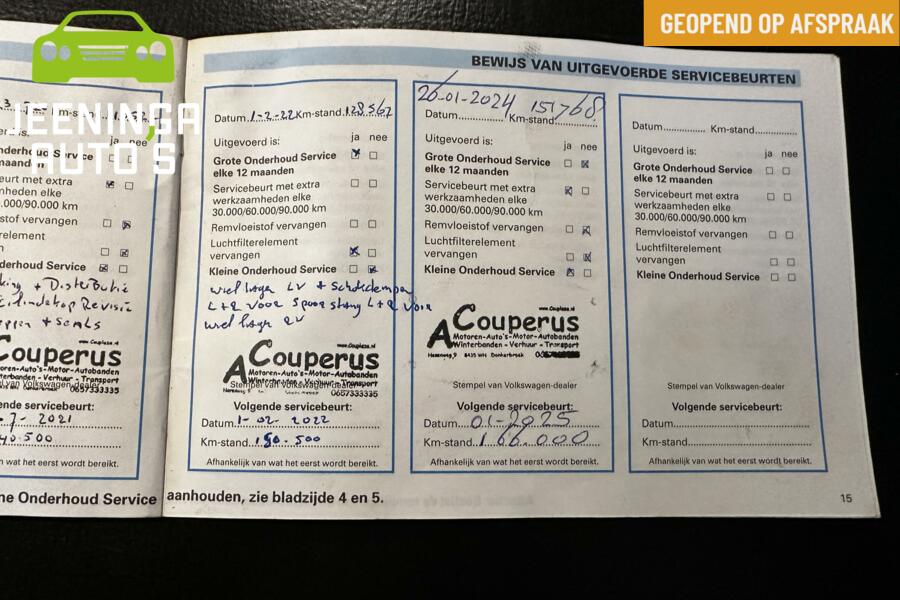 GEOPEND OP AFSPRAAK
JEENINGA
AUTO'S
BEWIJS VAN UITGEVOERDE SERVICEBEURTEN
ja nee
maanden
beurt met extra
werkzaamheden elke
60.000/90.000 km
vervangen
Onderhoud Service
+ Distributie
Revisie
Couperus
www.Couplaza.nl
Stempel van Volkswagen-dealer
0657333335
Volgende servicebeurt:
7-2021
40.500
Afhankelijk van wat het eerst wordt bereikt.
Datum 1-2-22 Km-stand 128567
Uitgevoerd is:
ja nee
Grote Onderhoud Service
elke 12 maanden
Servicebeurt met extra
werkzaamheden elke
30.000/60.000/90.000 km
Remvloeistof vervangen
Luchtfilterelement
vervangen
Kleine Onderhoud Service
wiel lager LV + Schokdemper
L+R voor Spoorstang L+R voor
wiel lager RV
www.Couplaza.nl
A Couperus
Motoren-Auto's-Motor-Autobanden
Winterbanden-Verhuur-Transport
0657333335
Stempel van Volkswagen-dealer
Volgende servicebeurt:
Datum 1-02-2022
Km-stand 150.500
Afhankelijk van wat het eerst wordt bereikt.
26-01-2024 151768
Datum Km-stand
Uitgevoerd is:
ja nee
Grote Onderhoud Service
elke 12 maanden
Servicebeurt met extra
werkzaamheden elke
30.000/60.000/90.000 km
Remvloeistof vervangen
Luchtfilterelement
vervangen
Kleine Onderhoud Service
www.Couplaza.nl
A Couperus
Motoren-Auto's-Motor-Autobanden
Winterbanden-Verhuur-Transport
9 8435 WH Donkerbroek
Stempel van Volkswagen-dealer
Volgende servicebeurt:
Datum 01-2025
Km-stand 166.000
Afhankelijk van wat het eerst wordt bereikt.
Datum Km-stand
Uitgevoerd is:
ja nee
Grote Onderhoud Service
elke 12 maanden
Servicebeurt met extra
werkzaamheden elke
30.000/60.000/90.000 km
Remvloeistof vervangen
Luchtfilterelement
vervangen
Kleine Onderhoud Service
Stempel van Volkswagen-dealer
Volgende servicebeurt:
Datum
Km-stand
Afhankelijk van wat het eerst wordt bereikt.
Onderhoud Service aanhouden, zie bladzijde 4 en 5.
15